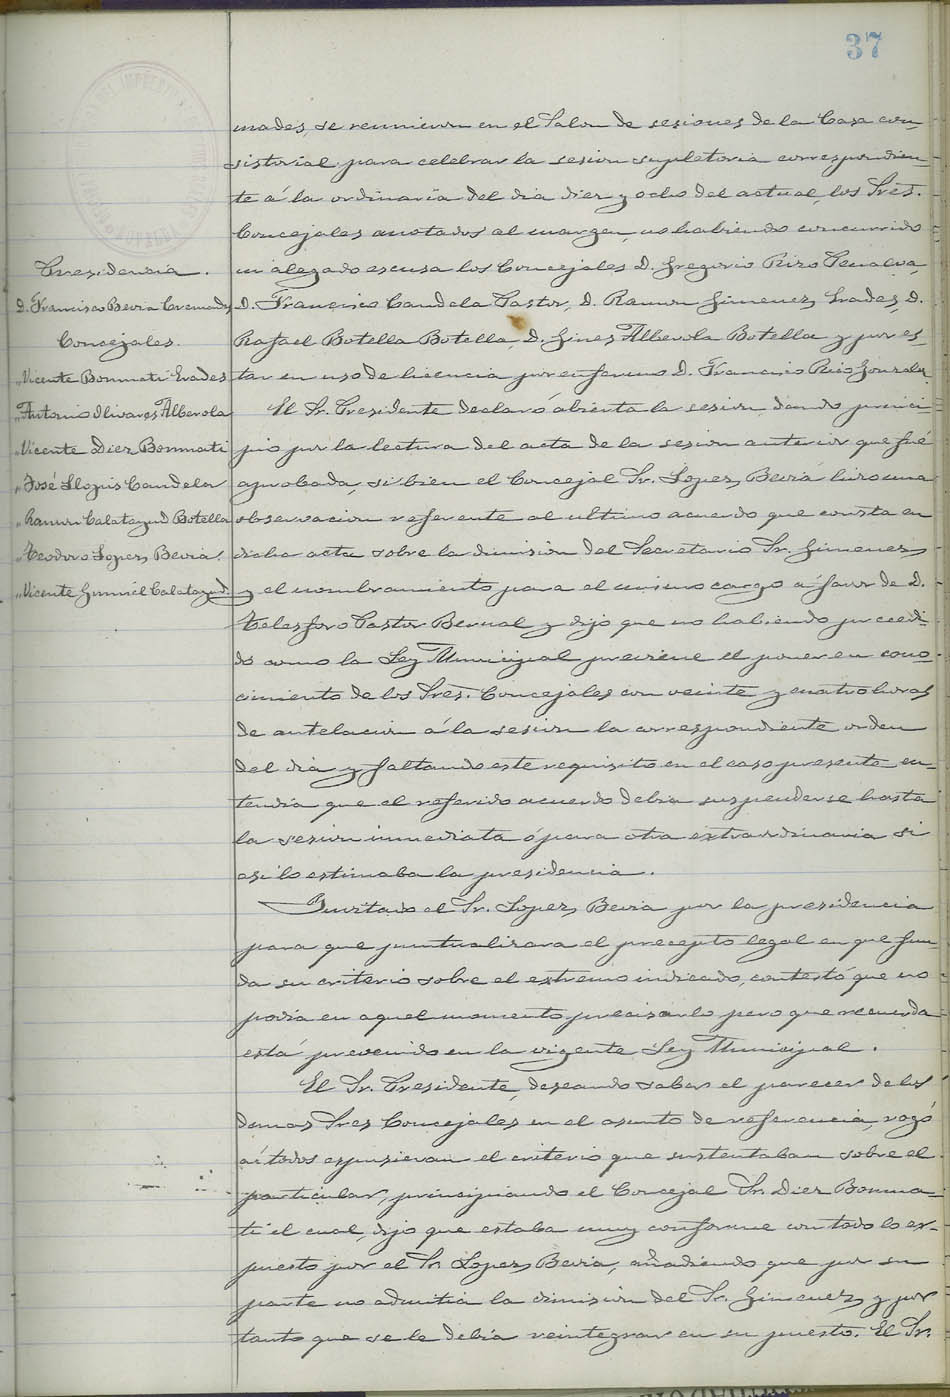 37
mades, se reunieron en el Salon de sesiones de la Casa con-
sistorial para celebrar la sesion supletoria correspondien-
te á la ordinaria del dia diez y ocho del actual, los Sres.
Concejales anotados al margen, no habiendo concurrido
ni alegado escusa los Concejales D. Gregorio Rizo Penalva,
D. Francisco Candela Pastor, D. Ramon Gimenez Prades, D.
Rafael Botella Botella, D. Gines Alberola Botella y por es-
tar en uso de licencia por enfermo D. Francisco Rico Gonzalez
El Sr. Presidente declaró abierta la sesion dando princi
pio por la lectura del acta de la sesion anterior que fué
aprobada, si bien el Concejal Sr. Lopez Beviá hizo una
observacion referente al ultimo acuerdo que consta en
dicha acta sobre la dimisión del Secretario Sr. Gimenez
y el nombramiento para el mismo cargo á favor de D.
Telesforo Pastor Bernal y dijo que no habiendo precedi-
do como la Ley Municipal previene el poner en cono-
cimiento de los Sres. Concejales con veinte y cuatro horas
de antelacion á la sesion la correspondiente orden
del dia y faltando este requisito en el caso presente en-
tendia que el referido acuerdo debia suspenderse hasta
la sesion inmediata ó para otra extraordinaria si
asi lo estimaba la presidencia.
Invitado el Sr. Lopez Bevia por la presidencia
para que puntualizara el precepto legal en que fun-
da su criterio sobre el extremo indicado, contestó que no
podia en aquel momento precisarlo pero que recuerda
está prevenido en la vigente Ley Municipal.
El Sr. Presidente, deseando saber el parecer de los
demas Sres Concejales en el asunto de referencia, rogó
á todos expusieran el criterio que sustentaban sobre el
particular, principiando el Concejal Sr. Diez Bonma-
ti el cual, dijo que estaba muy conforme con todo lo ex-
puesto por el Sr Lopez Bevia, añadiendo que por su
parte no admitia la dimisión del Sr. Gimenez y por
tanto que se le debia reintegrar en su puesto. El Sr.
Presidencia.
D. Francisco Bevia Cremades
Concejales.
" Vicente Bonmati Prades
" Antonio Olivares Alberola
" Vicente Diez Bonmati
" José Llopis Candela
" Ramon Calatayud Botella
" Teodoro Lopez Bevia.
" Vicente Gumiel Calatayud.